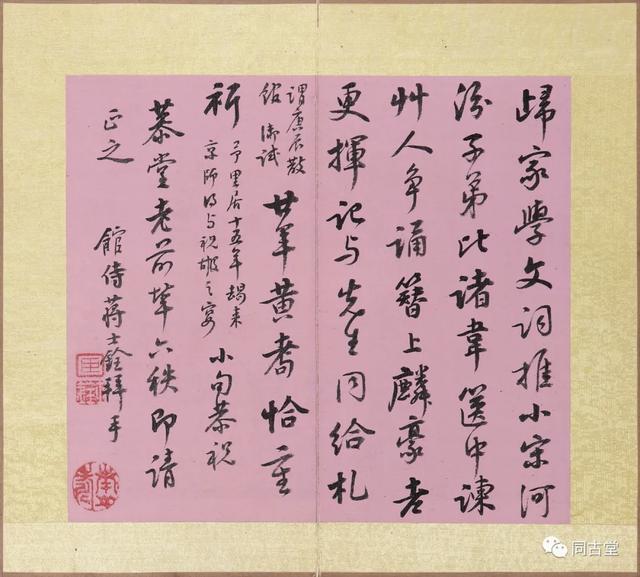 歸家學文詞推小宋河
汾子弟比諸韋篋中諫
艸人爭誦簪上麟豪老
更揮記与先生同給札
謂庚辰散
館御試
廿年黃耇恰重
祈
予里居十五年朅来
京師得与祝嘏之宴
小句恭祝
慕堂老前輩六秩即請
正之
館侍蔣士銓拜手
同古堂